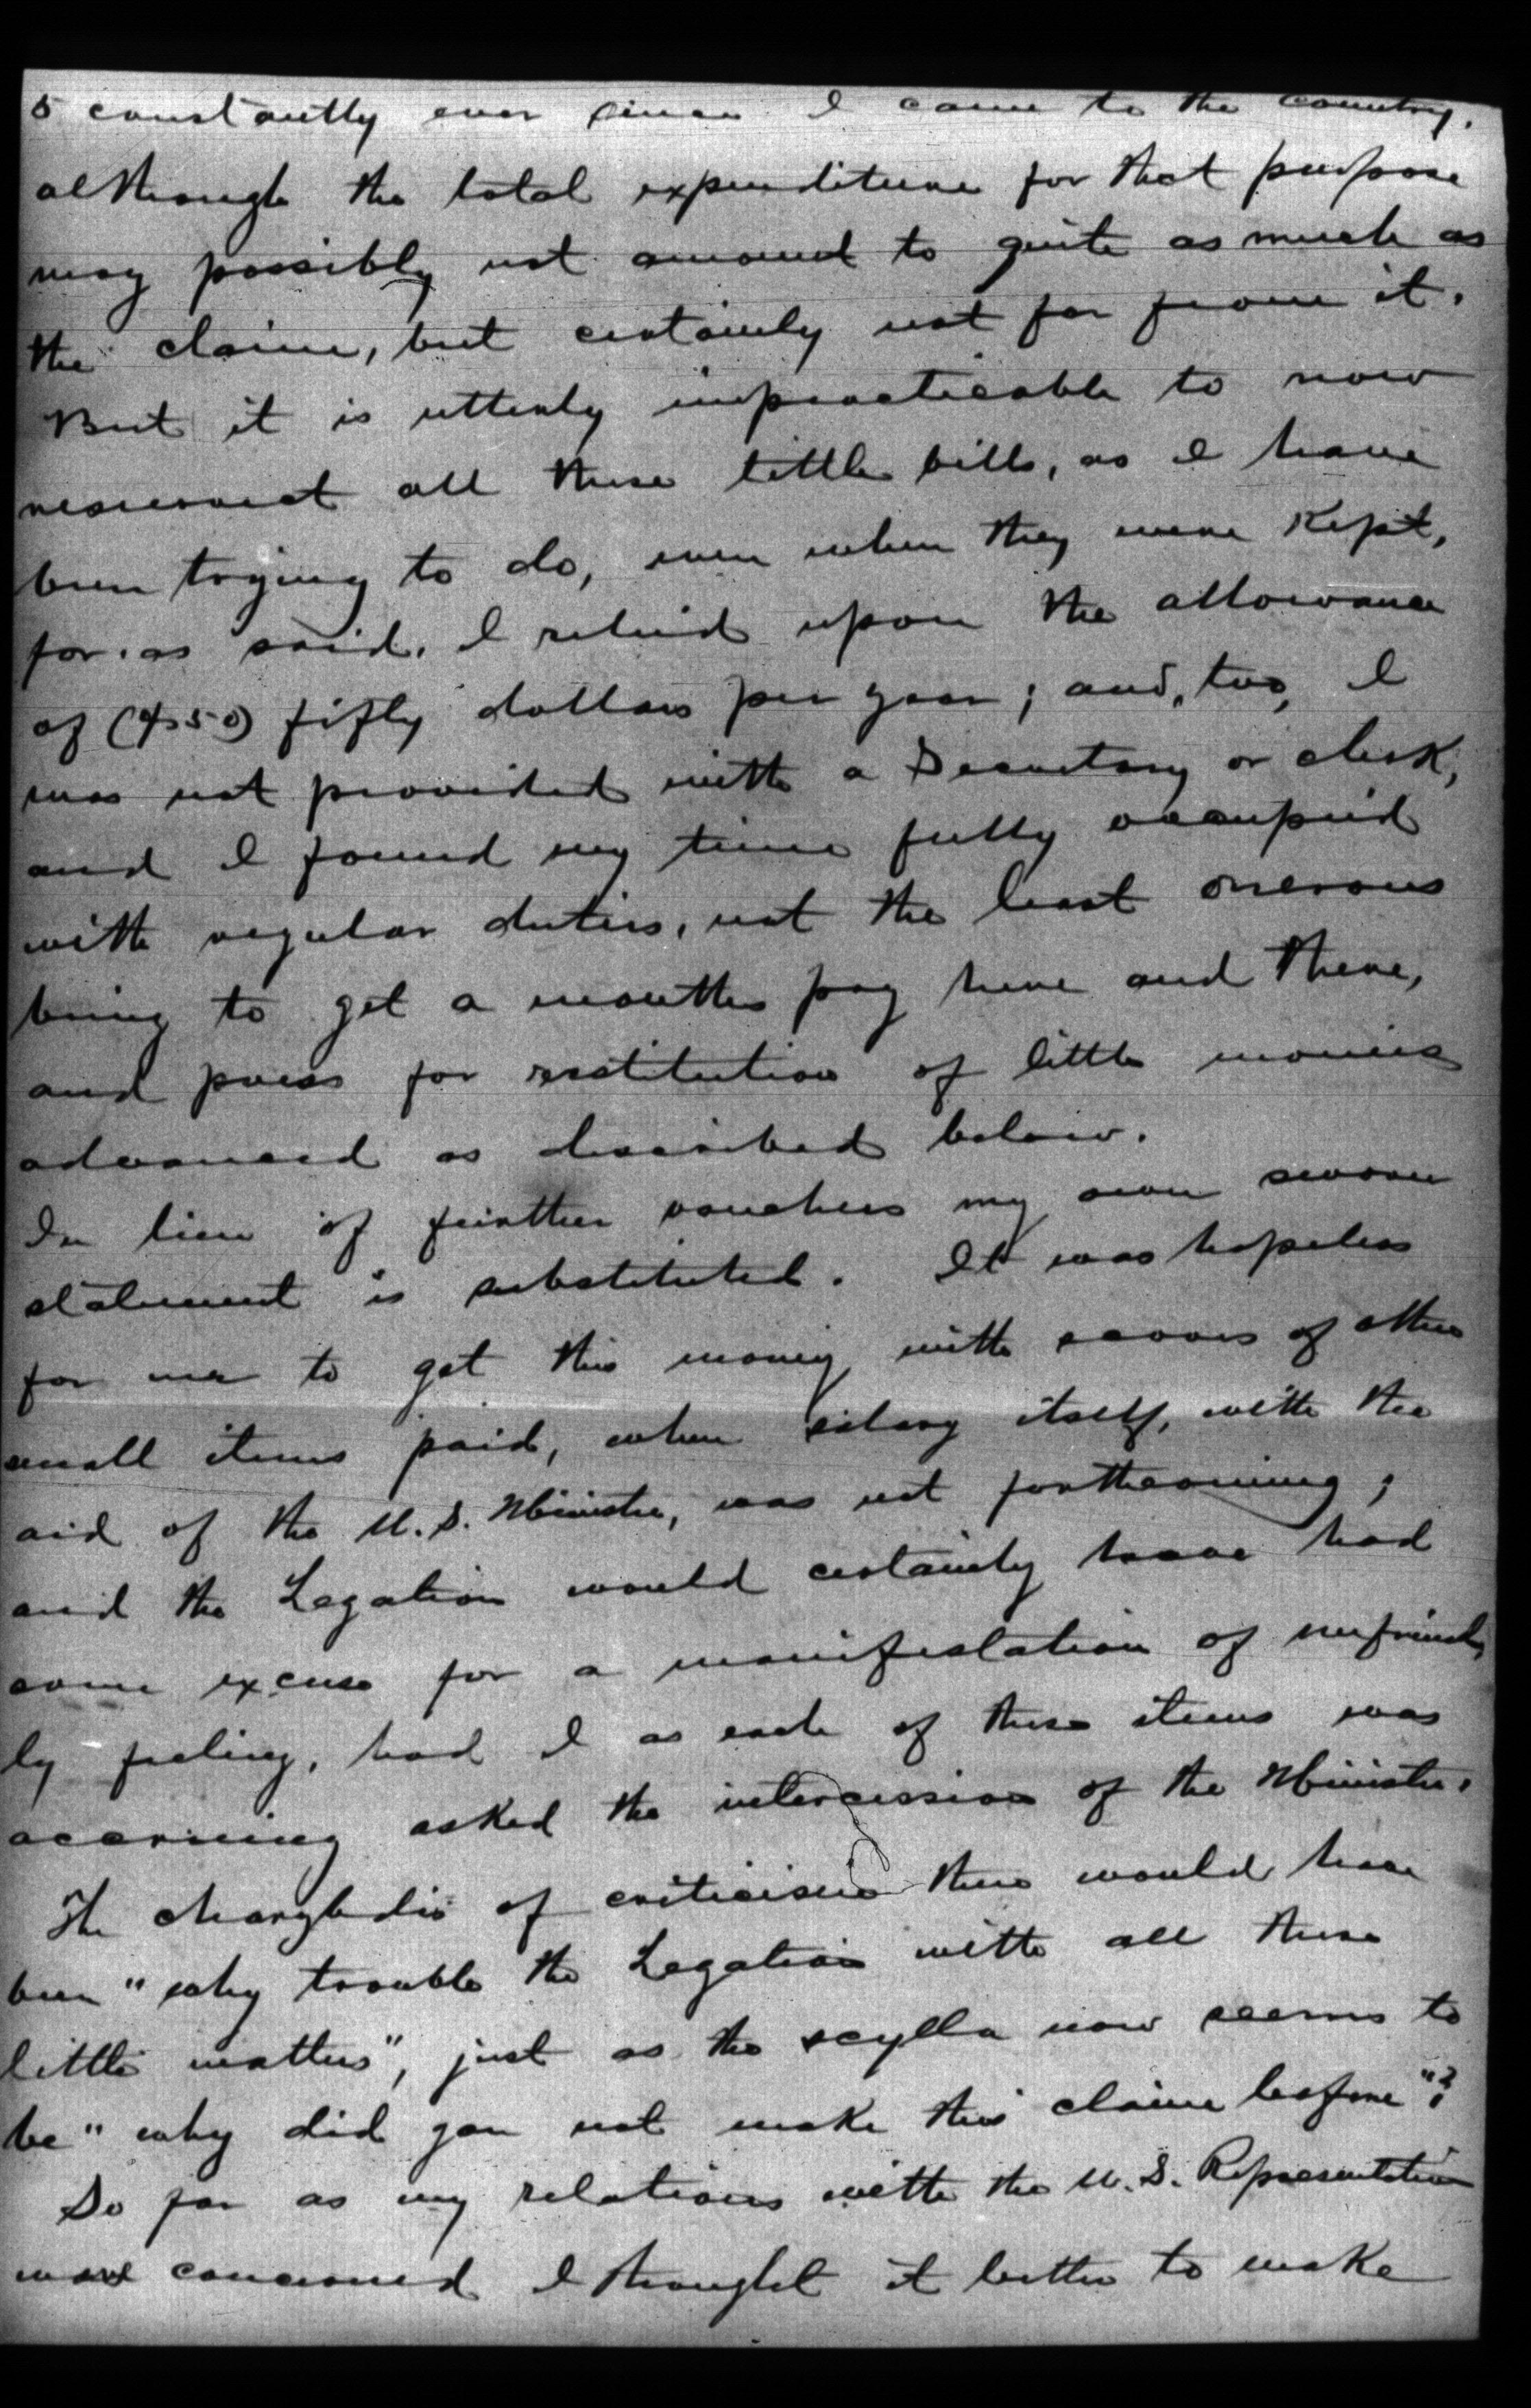 5 constantly ever since I came to the country,
although the total expenditure for that purpose
may possibly not amount to quite as much as
the claim, but certainly not far from it.
But it is utterly impracticable to now
resurrect all these little bills, as I have
been trying to do, even when they were kept,
for as said, I relied upon the allowance
of ($50) fifty dollars per year; and, too, I
was not provided with a Secretary or clerk,
and I found my time fully occupied
with regular duties, not the least onerous
being to get a months pay here and there,
and press for restitution of little monies
advanced as described below.
In lieu of further vouchers my own sworn
statement is substituted. It was hopeless
for me to get this money with scores of other
small items paid, when salary itself, with the
aid of the U.S. Minister, was not forthcoming;
and the Legation would certainly have had
some excuse for a manifestation of unfriend-
ly feeling, had I as each of these items was
accruing asked the intercession of the Minister.
The charybdis of criticism there would have
been "why trouble the Legation with all these
little matters", just as the scylla now seems to
be "why did you not make this claim before"?
So far as my relations with the U.S. Representative
concerned I thought it better to make